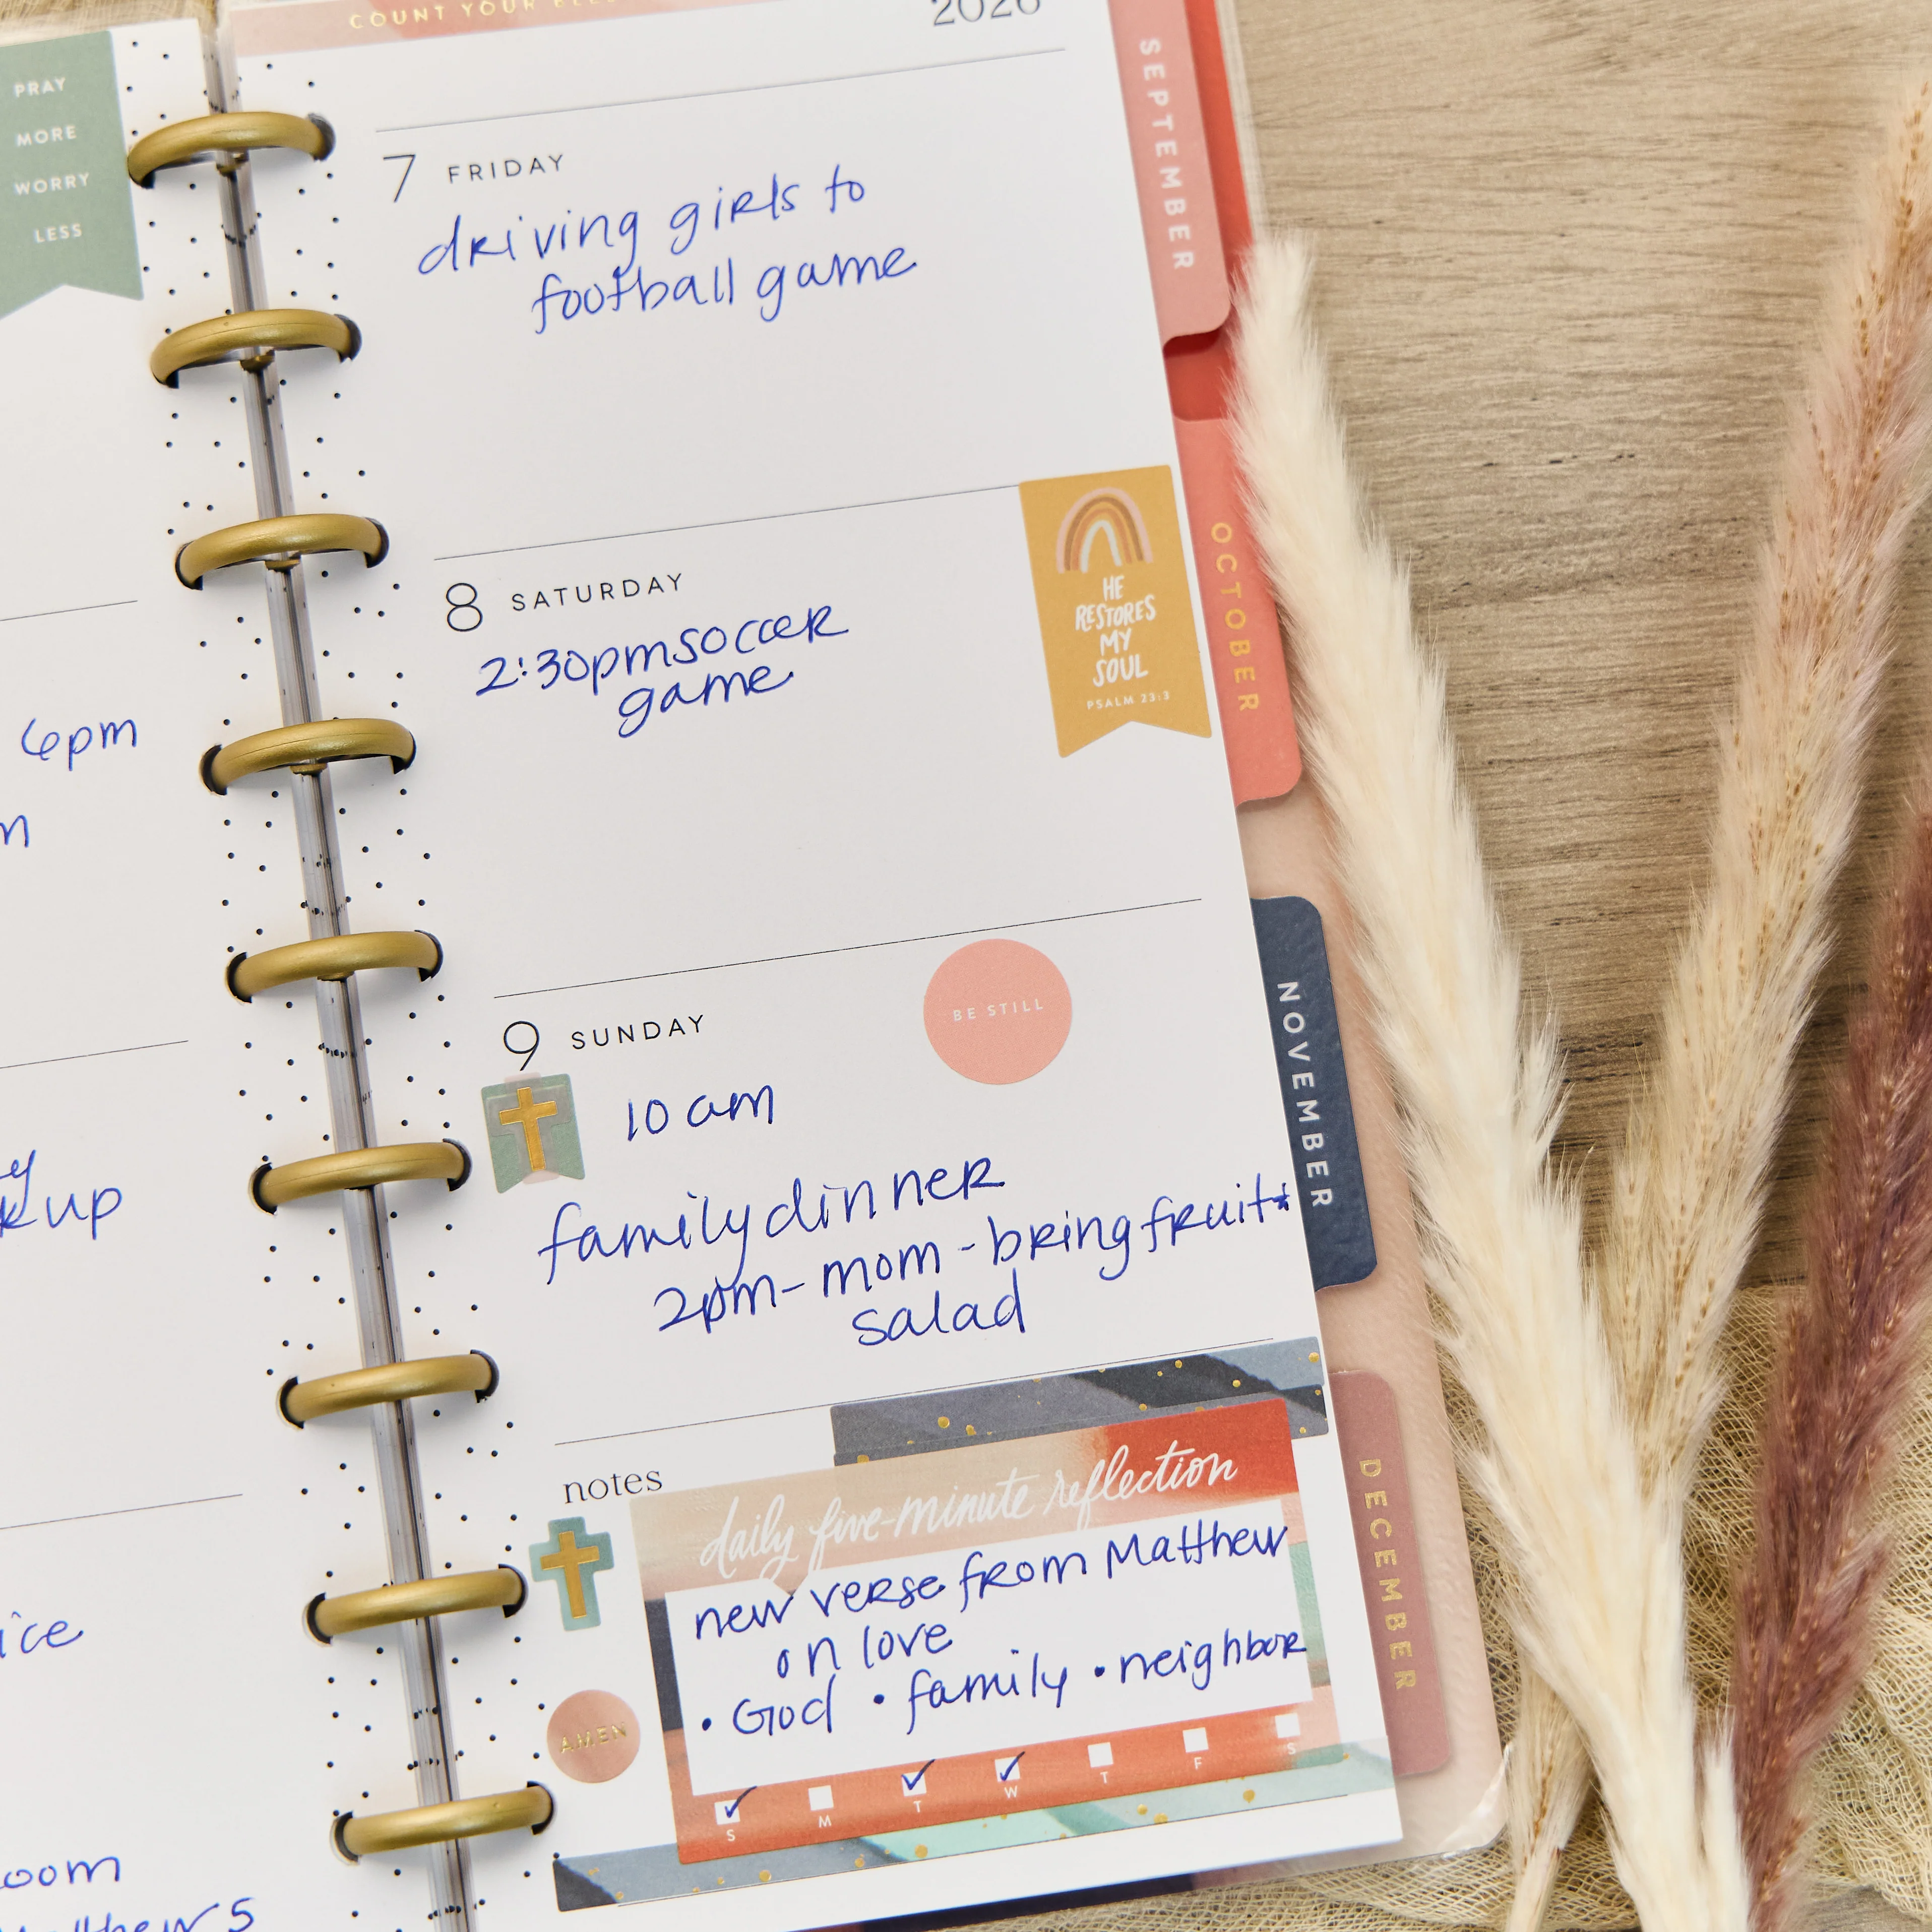 PRAY
MORE
WORRY
LESS
6pm
up
COUNT YOUR
2026
7 FRIDAY
driving girls to
football game
8 SATURDAY
2:30pm soccer
game
HE
RESTORES
MY
SOUL
PSALM 23:3
9 SUNDAY
BE STILL
10 am
family dinner
2pm - mom - bring fruit
salad
notes
daily five-minute reflection
new verse from Matthew
on love
• God • family • neighbor
AMEN
S M T W T F S
SEPTEMBER
OCTOBER
NOVEMBER
DECEMBER